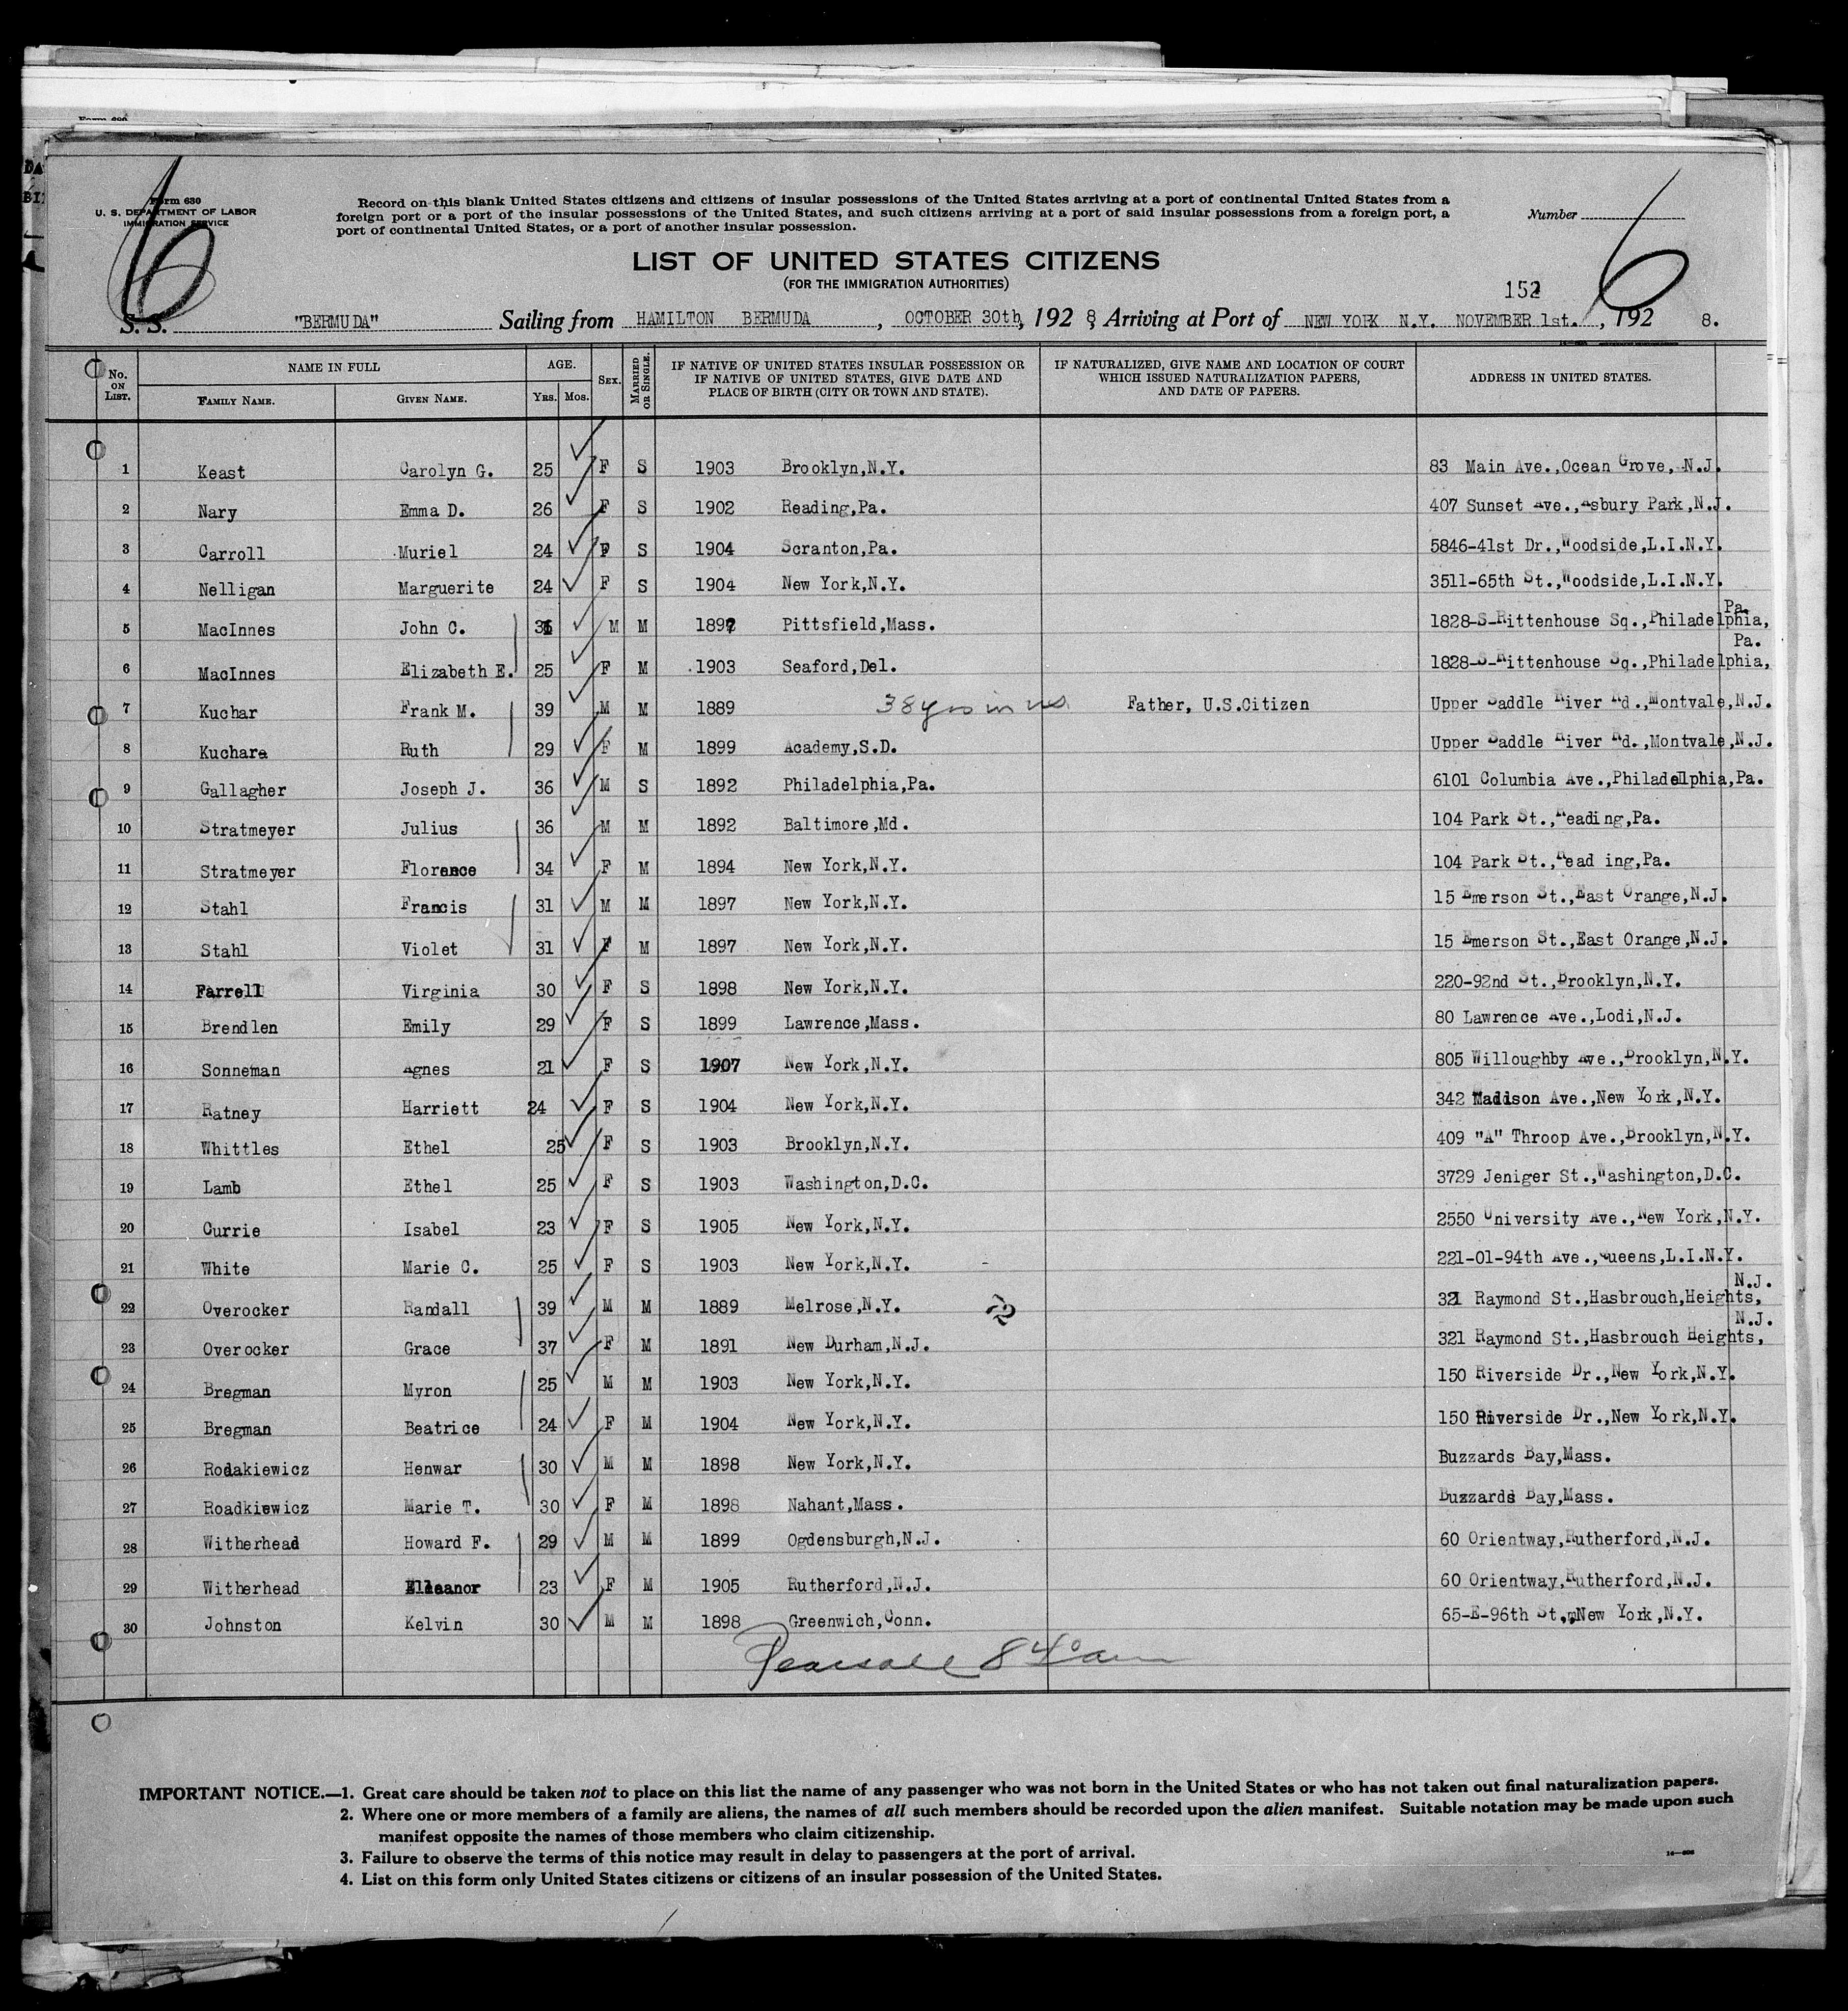 Form 630
U. S. DEPARTMENT OF LABOR
IMMIGRATION SERVICE
6
Record on this blank United States citizens and citizens of insular possessions of the United States arriving at a port of continental United States from a
foreign port or a port of the insular possessions of the United States, and such citizens arriving at a port of said insular possessions from a foreign port, a
port of continental United States, or a port of another insular possession.
Number
6
LIST OF UNITED STATES CITIZENS
(FOR THE IMMIGRATION AUTHORITIES)
152
S. S. "BERMUDA" Sailing from HAMILTON BERMUDA, OCTOBER 30th, 1928, Arriving at Port of NEW YORK N.Y. NOVEMBER 1st., 192 8.
No. ON LIST. NAME IN FULL FAMILY NAME. GIVEN NAME. AGE. YRS. MOS. SEX. MARRIED OR SINGLE. IF NATIVE OF UNITED STATES INSULAR POSSESSION OR IF NATIVE OF UNITED STATES, GIVE DATE AND PLACE OF BIRTH (CITY OR TOWN AND STATE). IF NATURALIZED, GIVE NAME AND LOCATION OF COURT WHICH ISSUED NATURALIZATION PAPERS, AND DATE OF PAPERS. ADDRESS IN UNITED STATES.
1 Keast Carolyn G. 25 F S 1903 Brooklyn,N.Y. 83 Main Ave.,Ocean Grove, N.J.
2 Nary Emma D. 26 F S 1902 Reading,Pa. 407 Sunset Ave.,Asbury Park,N.J.
3 Carroll Muriel 24 F S 1904 Scranton,Pa. 5846-41st Dr.,Woodside,L.I.N.Y.
4 Nelligan Marguerite 24 F S 1904 New York,N.Y. 3511-65th St.,Woodside,L.I.N.Y.
5 MacInnes John C. 31 M M 1897 Pittsfield,Mass. 1828-S-Rittenhouse Sq.,Philadelphia, Pa.
6 MacInnes Elizabeth E. 25 F M 1903 Seaford,Del. 1828-S-Rittenhouse Sq.,Philadelphia, Pa.
7 Kuchar Frank M. 39 M M 1889 38 yrs in US Father, U.S.Citizen Upper Saddle River Rd.,Montvale,N.J.
8 Kuchara Ruth 29 F M 1899 Academy,S.D. Upper Saddle River Rd.,Montvale,N.J.
9 Gallagher Joseph J. 36 M S 1892 Philadelphia,Pa. 6101 Columbia Ave.,Philadellphia,Pa.
10 Stratmeyer Julius 36 M M 1892 Baltimore,Md. 104 Park St.,Reading,Pa.
11 Stratmeyer Florence 34 F M 1894 New York,N.Y. 104 Park St.,Read ing,Pa.
12 Stahl Francis 31 M M 1897 New York,N.Y. 15 Emerson St.,East Orange,N.J.
13 Stahl Violet 31 F M 1897 New York,N.Y. 15 Emerson St.,East Orange,N.J.
14 Farrell Virginia 30 F S 1898 New York,N.Y. 220-92nd St.,Brooklyn,N.Y.
15 Brendlen Emily 29 F S 1899 Lawrence,Mass. 80 Lawrence Ave.,Lodi,N.J.
16 Sonneman Agnes 21 F S 1907 New York,N.Y. 805 Willoughby Ave.,Brooklyn,N.Y.
17 Ratney Harriett 24 F S 1904 New York,N.Y. 342 Madison Ave.,New York,N.Y.
18 Whittles Ethel 25 F S 1903 Brooklyn,N.Y. 409 "A" Throop Ave.,Brooklyn,N.Y.
19 Lamb Ethel 25 F S 1903 Washington,D.C. 3729 Jeniger St.,Washington,D.C.
20 Currie Isabel 23 F S 1905 New York,N.Y. 2550 University Ave.,New York,N.Y.
21 White Marie C. 25 F S 1903 New York,N.Y. 221-01-94th Ave.,Queens,L.I.N.Y.
22 Overocker Randall 39 M M 1889 Melrose,N.Y. 321 Raymond St.,Hasbrouch,Heights, N.J.
23 Overocker Grace 37 F M 1891 New Durham,N.J. 321 Raymond St.,Hasbrouch Heights, N.J.
24 Bregman Myron 25 M M 1903 New York,N.Y. 150 Riverside Dr.,New York,N.Y.
25 Bregman Beatrice 24 F M 1904 New York,N.Y. 150 Riverside Dr.,New York,N.Y.
26 Rodakiewicz Henwar 30 M M 1898 New York,N.Y. Buzzards Bay,Mass.
27 Roadkiewicz Marie T. 30 F M 1898 Nahant,Mass. Buzzards Bay,Mass.
28 Witherhead Howard F. 29 M M 1899 Ogdensburgh,N.J. 60 Orientway,Rutherford,N.J.
29 Witherhead Eleanor 23 F M 1905 Rutherford,N.J. 60 Orientway,Rutherford,N.J.
30 Johnston Kelvin 30 M M 1898 Greenwich,Conn. 65-E-96th St.,New York,N.Y.
Pearsall 8 40 am
IMPORTANT NOTICE.—1. Great care should be taken not to place on this list the name of any passenger who was not born in the United States or who has not taken out final naturalization papers.
2. Where one or more members of a family are aliens, the names of all such members should be recorded upon the alien manifest. Suitable notation may be made upon such
manifest opposite the names of those members who claim citizenship.
3. Failure to observe the terms of this notice may result in delay to passengers at the port of arrival.
4. List on this form only United States citizens or citizens of an insular possession of the United States.